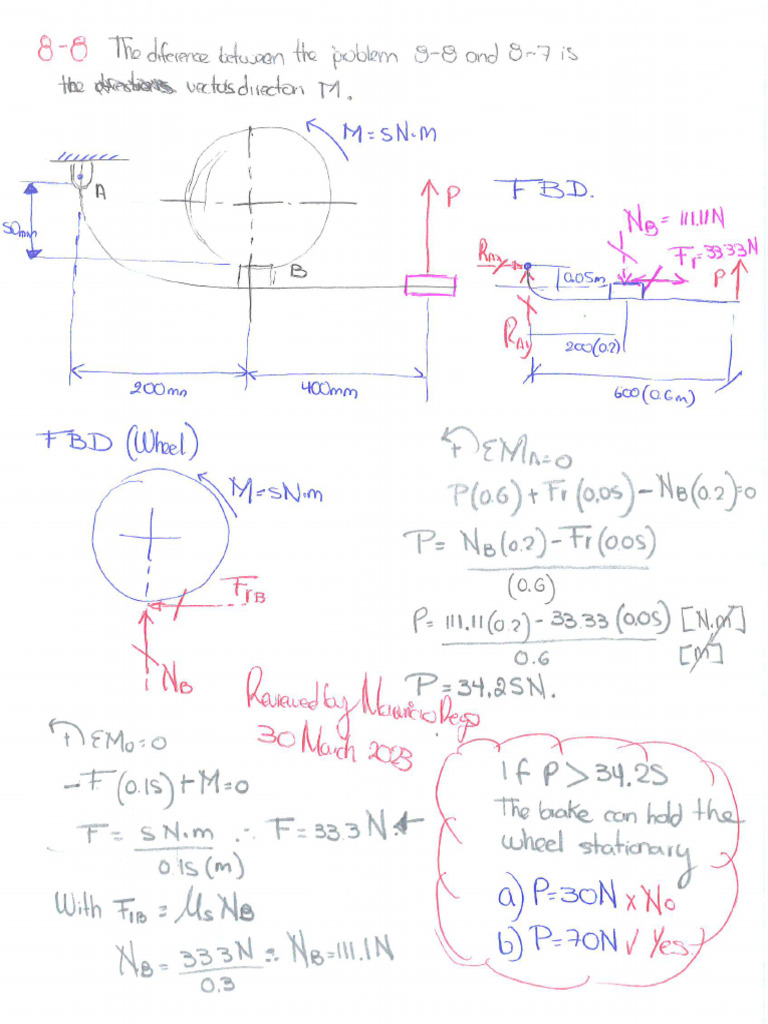 8-8 The diference between the problem 8-8 and 8-7 is
the vectus directon M.
M=5N·m
A
50mm
B
P
200mm
400mm
FBD.
NB = 111.11N
Fr=33.33N
RAx
0.05m
P
RAy
200(0.2)
600(0.6m)
FBD (Wheel)
M=5N·m
FrB
NB
+ΣMA=0
P(0.6)+Fr(0.05)-NB(0.2)=0
P= NB(0.2)-Fr(0.05)
(0.6)
P= 111.11(0.2)-33.33(0.05) [N.m]
0.6 [m]
P=34.25N.
Reviewed by Mauricio
30 March 2023
+ΣMo=0
-F(0.15)+M=0
F= 5N·m ∴ F=33.3N.
0.15(m)
With FrB = μs NB
NB = 33.3N ∴ NB=111.1N
0.3
If P>34.25
The brake can hold the
wheel stationary
a) P=30N x No
b) P=70N √ Yes.